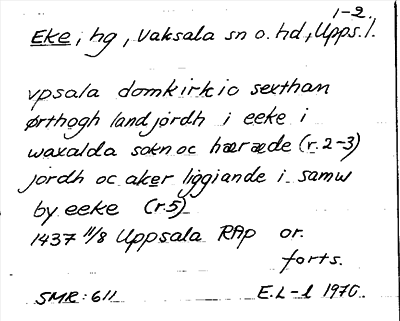 1-2.
Eke, hg, Vaksala sn o. hd, Upps. l.
vpsala domkirkio sexthan
ørthogh landjordh i eeke i
waxalda sokn oc hæræde (r. 2-3)
jordh oc aker liggiande i samw
by eeke (r.5)
1437 11/8 Uppsala RAp or.
forts.
SMR: 611 E. L-l 1970.